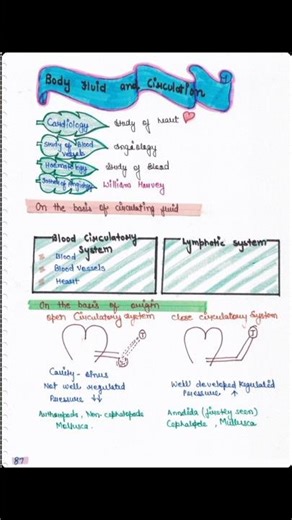 Body Fluid and Circulation
Cardiology Study of heart
Study of Blood vessels Angiology
Haematology Study of Blood
William Harvey
On the basis of circulating fluid
Blood Circulatory System
Blood
Blood Vessels
Heart
Lymphatic System
On the basis of origin
open Circulatory System
close circulatory System
Cavity - sinus
Not well regulated
Pressure ↓↓
Arthropods, Non-cephalopods
Mollusca.
Well developed Regulated
Pressure ↑
Annelida (firstly seen)
Cephalopods, Mollusca
87